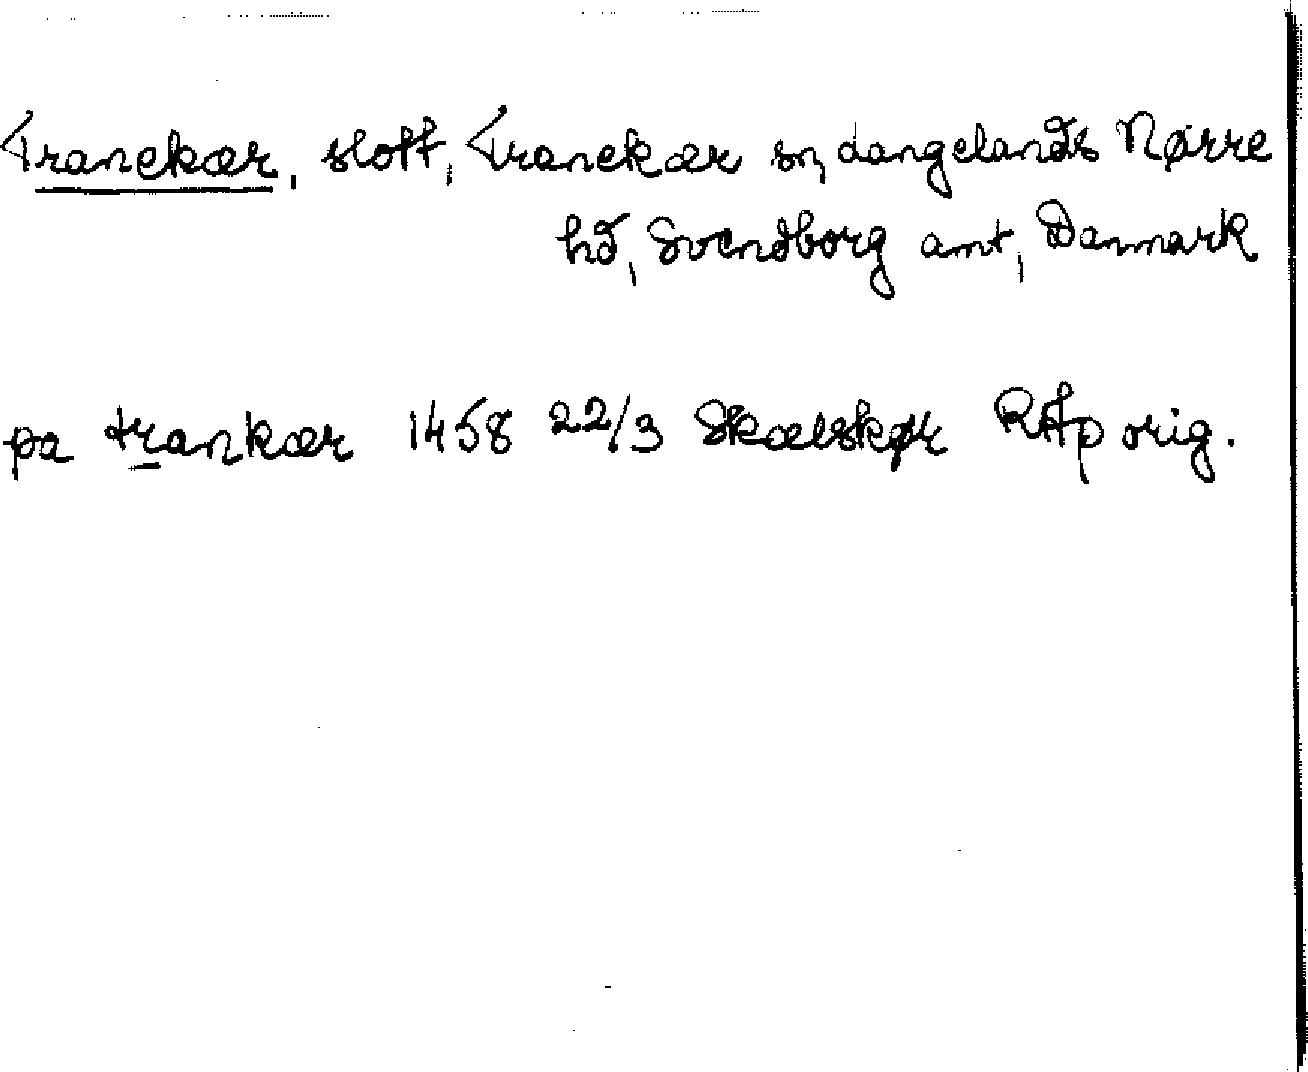 Tranekær, slott, Tranekær sn, Langelands Nørre
hd, Svendborg amt, Danmark
pa trankær 1458 22/3 Skælskør RAp orig.